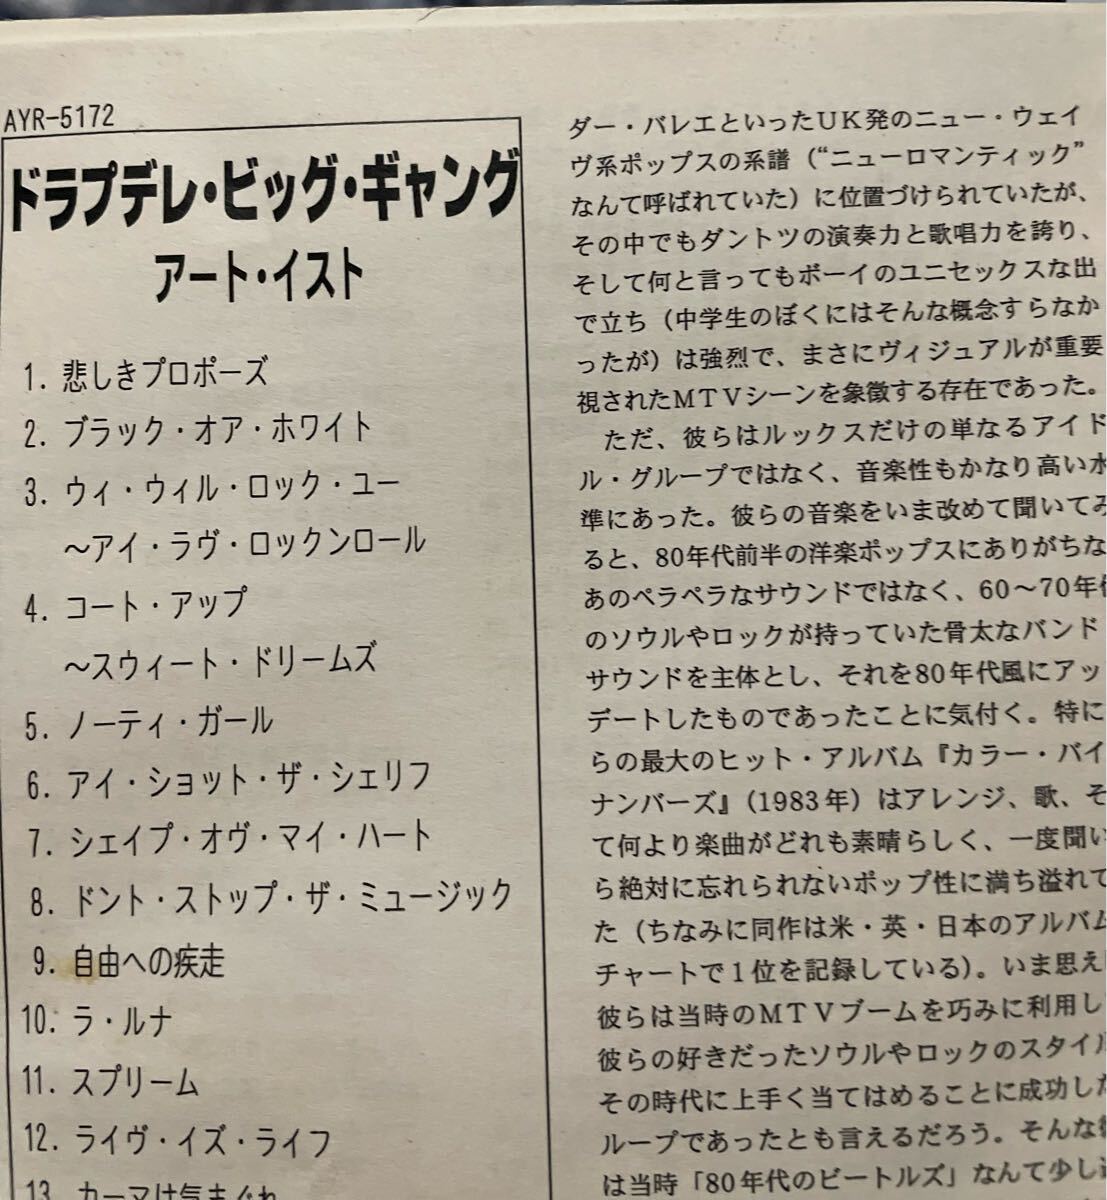 AYR-5172
ドラプデレ・ビッグ・ギャング
アート・イスト
1. 悲しきプロポーズ
2. ブラック・オア・ホワイト
3. ウィ・ウィル・ロック・ユー
～アイ・ラヴ・ロックンロール
4. コート・アップ
～スウィート・ドリームズ
5. ノーティ・ガール
6. アイ・ショット・ザ・シェリフ
7. シェイプ・オヴ・マイ・ハート
8. ドント・ストップ・ザ・ミュージック
9. 自由への疾走
10. ラ・ルナ
11. スプリーム
12. ライヴ・イズ・ライフ
13. カーマは気まぐれ
ダー・バレエといったUK発のニュー・ウェイ
ヴ系ポップスの系譜（“ニューロマンティック”
なんて呼ばれていた）に位置づけられていたが、
その中でもダントツの演奏力と歌唱力を誇り、
そして何と言ってもボーイのユニセックスな出
で立ち（中学生のぼくにはそんな概念すらなか
ったが）は強烈で、まさにヴィジュアルが重要
視されたMTVシーンを象徴する存在であった。
ただ、彼らはルックスだけの単なるアイド
ル・グループではなく、音楽性もかなり高い水
準にあった。彼らの音楽をいま改めて聞いてみ
ると、80年代前半の洋楽ポップスにありがちな
あのペラペラなサウンドではなく、60～70年代
のソウルやロックが持っていた骨太なバンド
サウンドを主体とし、それを80年代風にアッ
デートしたものであったことに気付く。特に
らの最大のヒット・アルバム『カラー・バイ
ナンバーズ』（1983年）はアレンジ、歌、そ
て何より楽曲がどれも素晴らしく、一度聞い
ら絶対に忘れられないポップ性に満ち溢れて
た（ちなみに同作は米・英・日本のアルバム
チャートで1位を記録している）。いま思え
彼らは当時のMTVブームを巧みに利用し
彼らの好きだったソウルやロックのスタイル
その時代に上手く当てはめることに成功した
ループであったとも言えるだろう。そんな
は当時「80年代のビートルズ」なんて少し